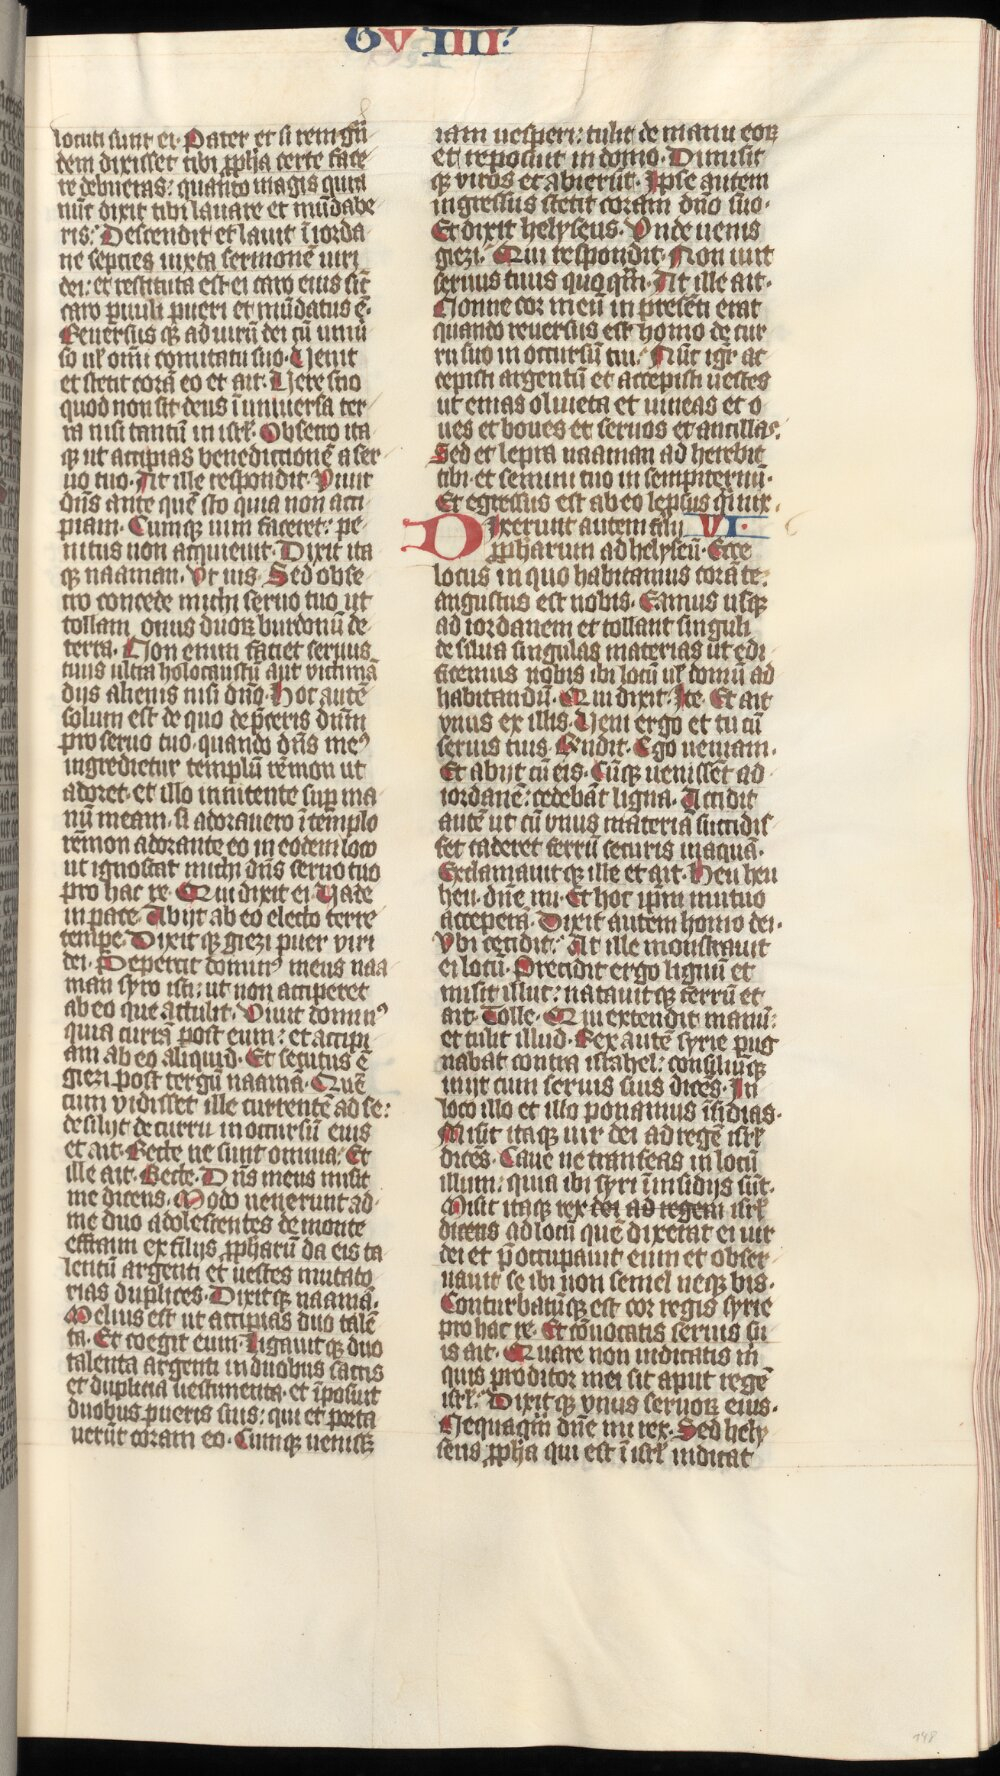 GV IIII
locuti sunt ei. Pater et si rem gͣn
dem dixisset tibi ꝓpha certe face
re debueras: quanto magis quia
nūc dixit tibi lauare et mūdabe
ris. Descendit et lauit ī iorda
ne septies iuxta sermonē uiri
dei: et restituta est ei caro eius sic̄
caro ꝑuuli pueri et mūdatus ē.
Reuersus qꝫ ad uirū dei cū uniu̇
so ul̓ om̄i comitatu suo. Uenit
et stetit corā eo et ait. Uere scio
quod non sit deus ī uniuersa ter
ra nisi tantū in isrl̓. Obsecro ita
qꝫ ut accipias benedictionē a ser
uo tuo. At ille respondit. Viuit
dn̄s ante quē sto quia non acci
piam. Cumqꝫ uim faceret: pe
nitus non acquieuit. Dixit ita
qꝫ naaman. Vt uis. Sed obse
cro concede michi seruo tuo ut
tollam onus duoꝝ burdonū de
terra. Non enim faciet seruus
tuus ultra holocaustū aut victimā
dijs alienis nisi dn̄o. Hoc autē
solum est de quo dep̄ceris dn̄m
pro seruo tuo. quando dn̄s meꝰ
ingredietur templū remon ut
adoret. et illo innitente suꝑ ma
nū meam. si adorauero ī templo
remon adorante eo in eodem loco
ut ignoscat michi dn̄s seruo tuo
pro hac re. Qui dixit ei. Uade
in pace. Abijt ab eo electo terre
tempe. Dixit qꝫ giezi puer viri
dei. Pepercit dominꝰ meus naa
man syro isti: ut non acciperet
ab eo que attulit. Viuit dominꝰ
quia currā post eum: et accipi
am ab eo aliquid. Et secutus ē
giezi post tergū naamā. Quē
cum vidisset ille currentē ad se:
desilijt de curru in occursū eius
et ait. Recte ne sunt omnia. Et
ille ait. Recte. Dn̄s meus misit
me dicens. Modo uenerunt ad
me duo adolescentes de monte
effraim ex filijs ꝓpharū da eis ta
lentū argenti et uestes mutato
rias duplices. Dixit qꝫ naamā.
Melius est ut accipias duo talē
ta. Et coegit eum. Ligauit qꝫ duo
talenta argenti in duobus saccis
et duplicia uestimenta. et īposuit
duobus pueris suis: qui et porta
uerūt coram eo. Cumqꝫ uenissꝫ
iam uesperi: tulit de manu eoꝝ
et reposuit in domo. Dimisit
qꝫ viros et abierūt. Ipse autem
ingressus stetit coram dn̄o suo.
Et dixit helyseus. Vnde uenis
giezi. Qui respondit. Non iuit
seruus tuus quoqm̄. At ille ait.
Nonne cor meū in presenti erat
quando reuersus est homo de cur
ru suo in occursū tui. Nūc igr̄ ac
cepisti argentū et accepisti uestes
ut emas oliueta et uineas et o
ues et boues et seruos et ancillas.
Sed et lepra naaman ad herebit
tibi. et semini tuo in sempiternū.
Et egressus est ab eo leprsus q̄ nix.
Dixerunt autem filij VI.
ꝓpharum ad helyseū. Ecce
locus in quo habitamus corā te:
angustus est nobis. Eamus usqꝫ
ad iordanem et tollant singuli
de silua singulas materias ut edi
ficemus nobis ibi locū ul̓ domū ad
habitandū. Qui dixit. Ite. Et ait
vnus ex illis. Ueni ergo et tu cū
seruis tuis. Rn̄dit. Ego ueniam.
Et abijt cū eis. Cūqꝫ uenissēt ad
iordanē: cedebāt ligna. Accidit
autē ut cū vnus materiā succidis
set caderet ferrū securis in aquā.
Exclamauit qꝫ ille et ait. Heu heu
heu. dn̄e mi. Et hoc ip̄m mutuo
acceperā. Dixit autem homo dei.
Vbi cecidit. At ille monstrauit
ei locū. Precidit ergo lignū et
misit illuc: natauit qꝫ ferrū et
ait. Tolle. Qui extendit manū:
et tulit illud. Rex autē syrie pug
nabat contra israhel: consiliūqꝫ
inijt cum seruis suis dicēs. In
loco illo et illo ponamus īsidias.
Misit itaqꝫ uir dei ad regē isrl̓
dicēs. Caue ne transeas in locū
illum: quia ibi syri ī insidijs sūt.
Misit itaqꝫ rex dei ad regem isrl̓
dicens ad locū quē dixerat ei uir
dei et p̄occupauit eum et obser
uauit se ibi non semel neqꝫ bis.
Conturbatūqꝫ est cor regis syrie
pro hac re. Et cōuocatis seruis su
is ait. Quare non indicatis m̄
quis proditor mei sit aput regē
isrl̓. Dixit qꝫ vnus seruoꝝ eius.
Nequaqm̄ dn̄e mi rex. Sed hely
seus ꝓpha qui est ī isrl̓ indicat
148